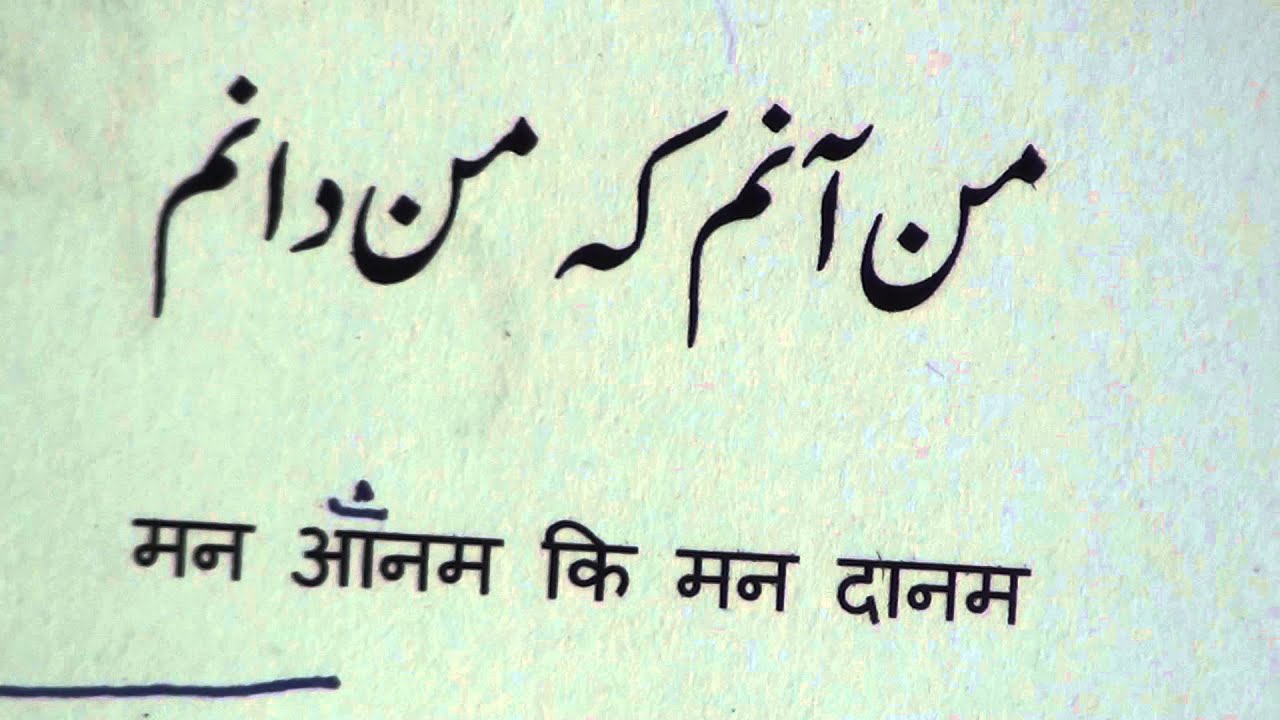 من آنم کہ من دانم
मन आँनम कि मन दानम